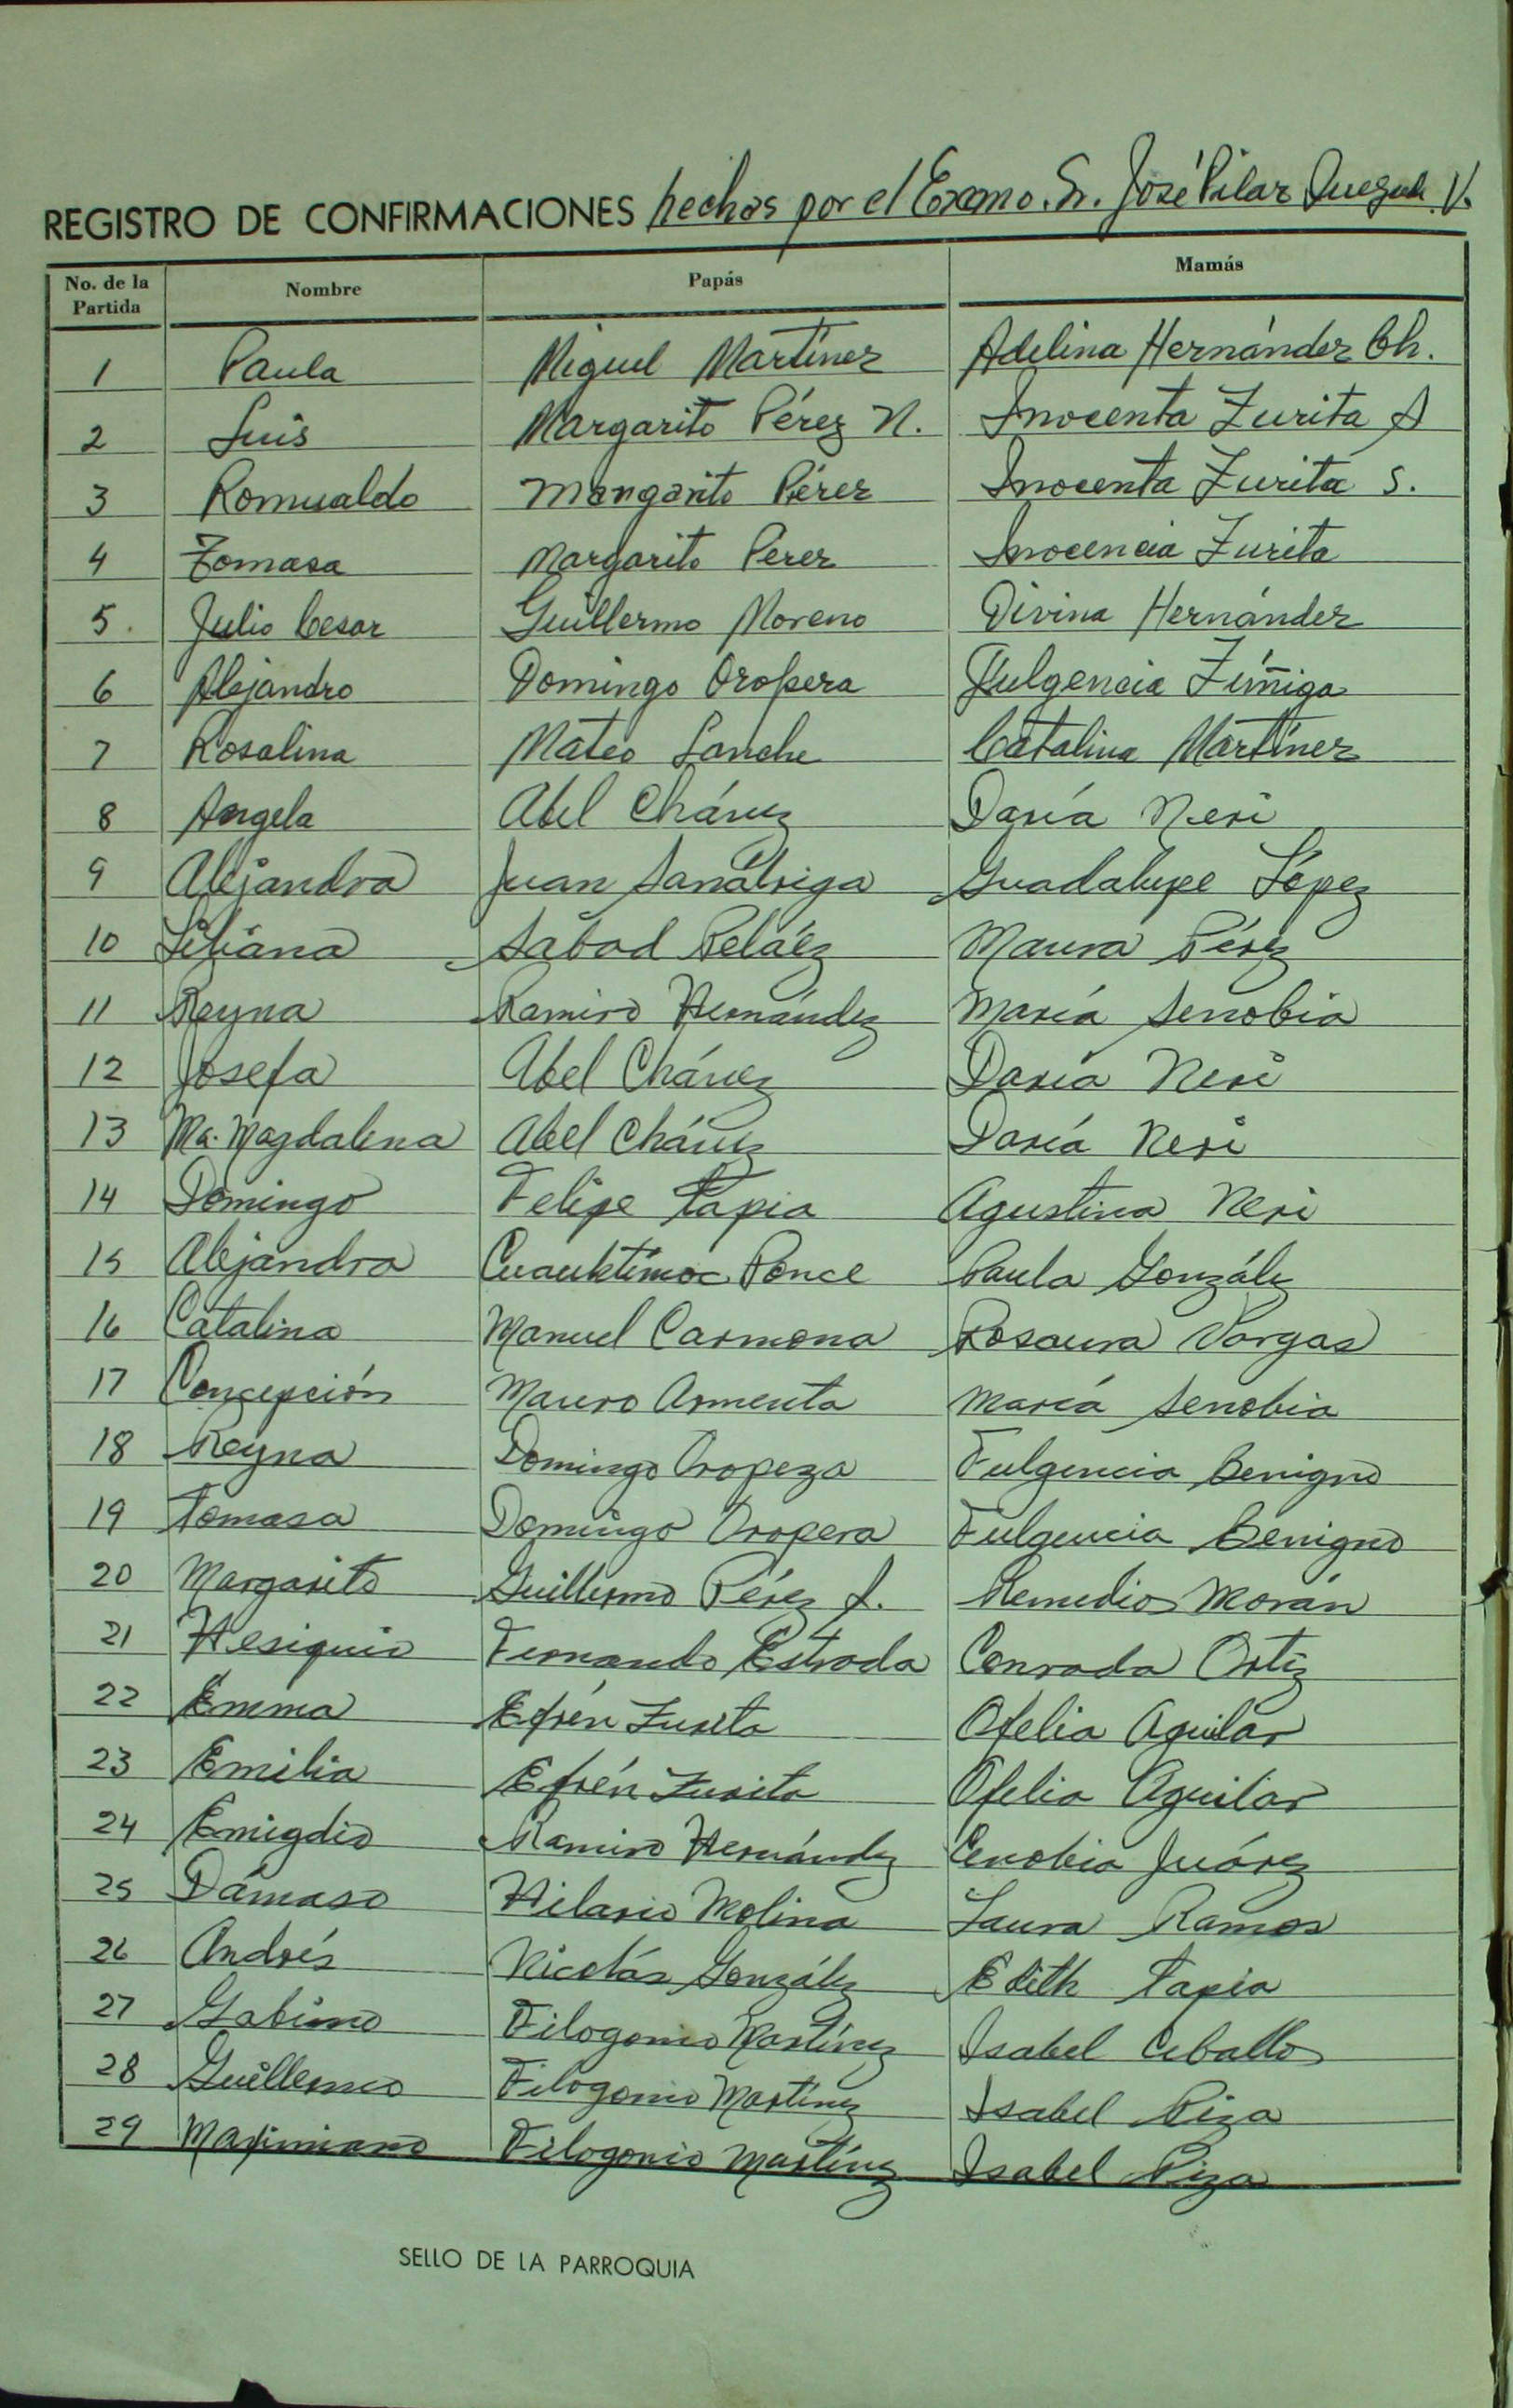 REGISTRO DE CONFIRMACIONES hechas por el Exmo. Sr. José Pilar Quezada V.
No. de la Partida Nombre Papás Mamás
1 Paula Miguel Martínez Adelina Hernández Ch.
2 Luis Margarito Pérez N. Inocenta Zurita A
3 Romualdo Margarito Pérez Inocenta Zurita S.
4 Tomasa Margarito Perez Inocencia Zurita
5. Julio Cesar Guillermo Moreno Divina Hernández
6 Alejandro Domingo Oropeza Fulgencia Zúñiga
7 Rosalina Mateo Sanche Catalina Martínez
8 Angela Abel Chávez Daría Neri
9 Alejandra Juan Sanabriga Guadalupe López
10 Liliana Sabad Peláez Maura Pérez
11 Reyna Ramiro Hernández María Senobia
12 Josefa Abel Chávez Daría Neri
13 Ma. Magdalena Abel Chávez Daría Neri
14 Domingo Felipe Tapia Agustina Neri
15 Alejandra Cuauhtimoc Ponce Paula González
16 Catalina Manuel Carmona Rosaura Vargas
17 Concepción Mauro Armenta María Senobia
18 Reyna Domingo Oropeza Fulgencia Benigno
19 Tomasa Domingo Oropeza Fulgencia Benigno
20 Margarito Guillermo Pérez J. Remedios Morán
21 Hesiquio Fernando Estrada Conrada Ortiz
22 Emma Efrén Zurita Ofelia Aguilar
23 Emilia Efrén Zurita Ofelia Aguilar
24 Emigdio Ramiro Hernández Cenobia Juárez
25 Dámaso Hilario Molina Laura Ramos
26 Andrés Nicolás González Edith Tapia
27 Gabino Filogonio Martínez Isabel Ceballos
28 Guillermo Filogonio Martínez Isabel Piza
29 Maximiano Filogonio Martínez Isabel Piza
SELLO DE LA PARROQUIA